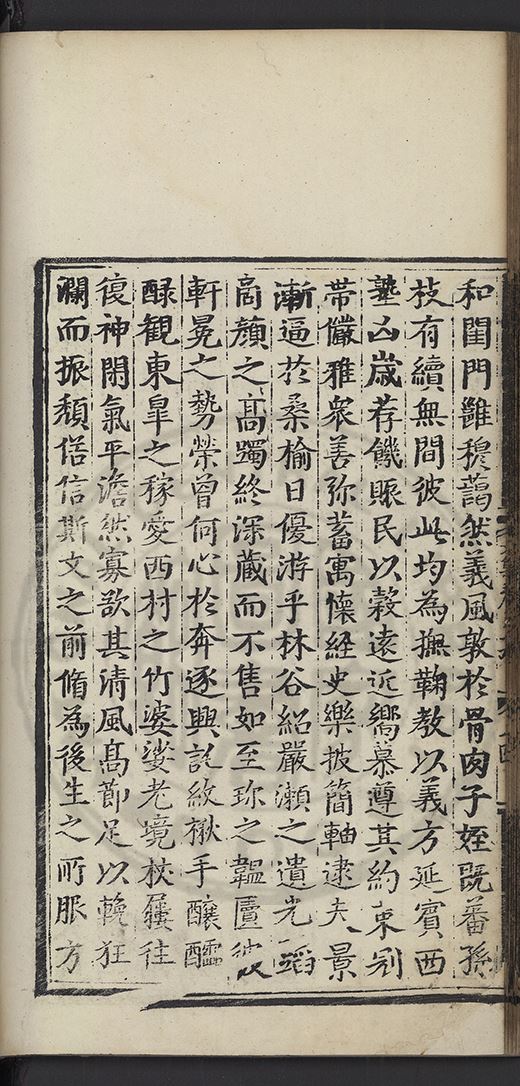 和閨門雖穆藹然義風敦於骨肉子姪既蕃孫
枝有續無間彼此均為撫鞠教以義方延賓西
塾凶歲荐饑賑民以穀遠近嚮慕遵其約束列
帶儼雅衆善弥蓄寓懷経史樂披簡軸逮夫景
漸逼於桑榆日優游乎林谷紹嚴瀬之遺光蹈
商顔之髙躅終深蔵而不售如至珎之韞匵彼
軒冕之勢榮曽何心於奔逐興託紋楸手釀醽
醁観東臯之稼愛西村之竹婆娑老境杖屨往
復神閒氣平澹然寡欲其清風髙節足以輓狂
瀾而振頽俗信斯文之前脩為後生之所服方